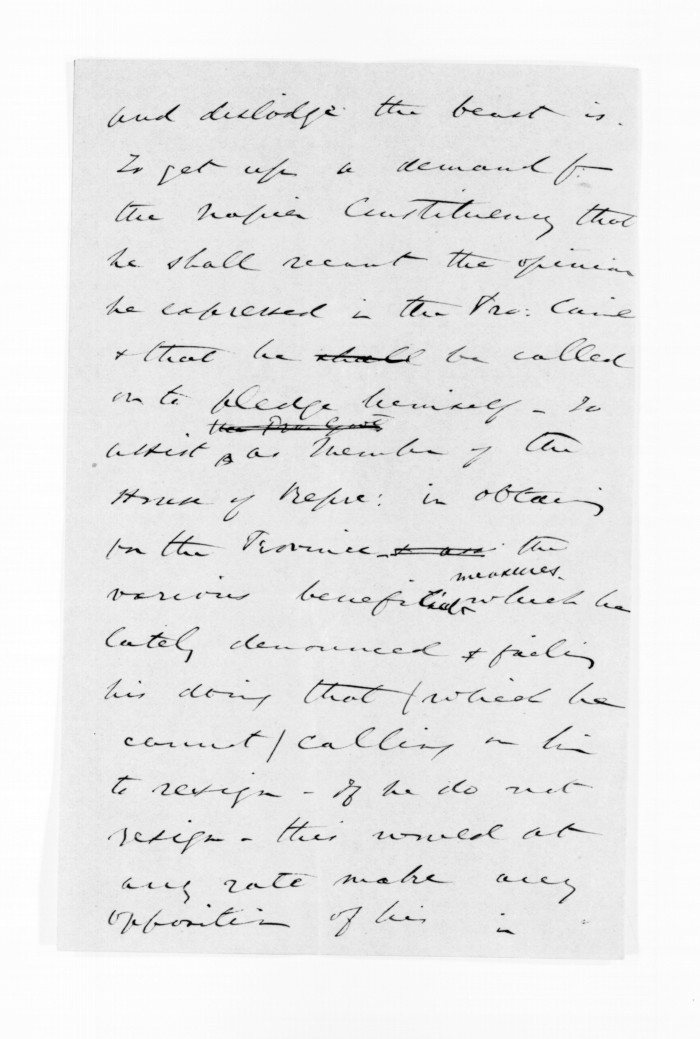 and dislodge the beast is.
To get up a demand f.
the Napier Constituency that
he shall recant the opinion
he expressed in the Pro: Coun
& that he shall be called
on to pledge himself - to
the Pro: Govt
assist as Member of the
House of Repre: in obtaing
for the Province - the
measures -
various beneficial which he
lately denounced & failing
his doing that / which he
cannot / calling on him
to resign - If he do not
resign - this would at
any rate make any
opposition of his in